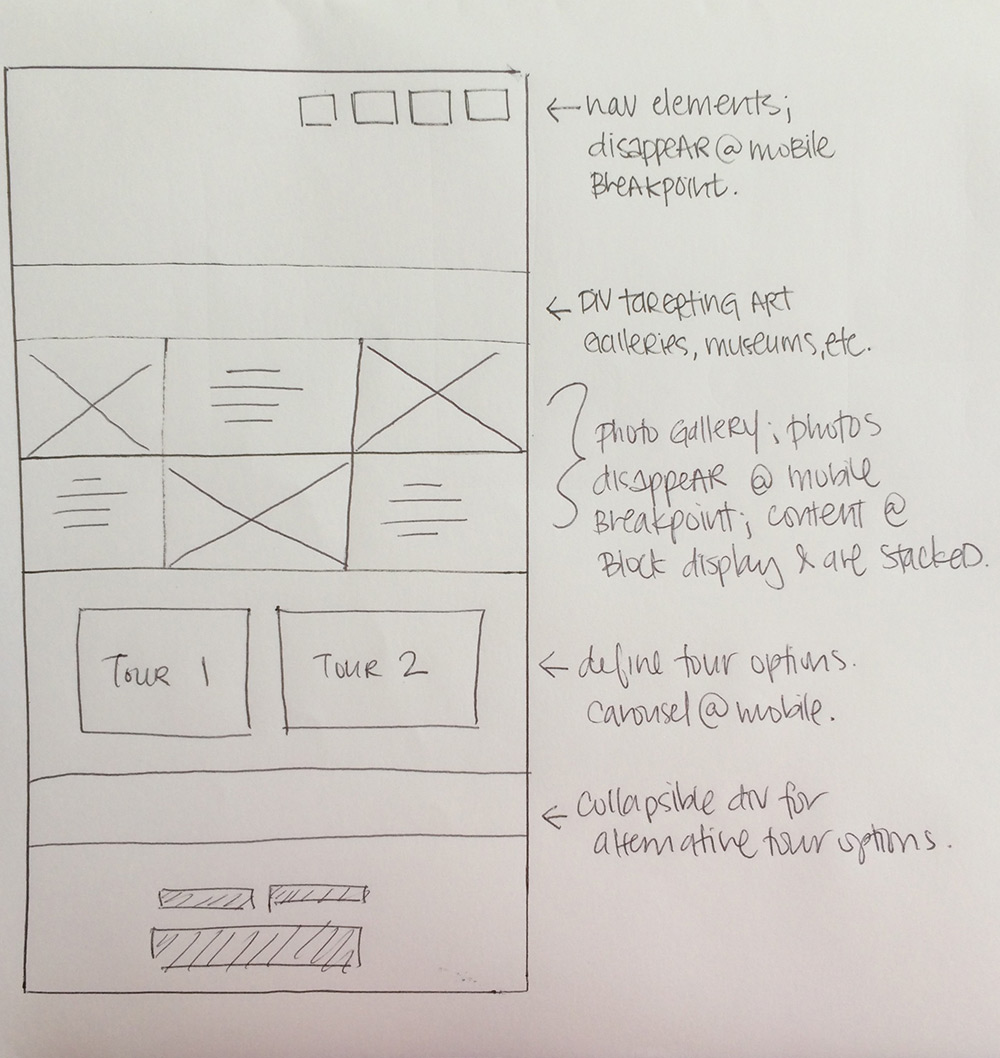 ← nav elements;
disappear @ mobile
breakpoint.
← Div targeting art
galleries, museums, etc.
photo gallery; photos
disappear @ mobile
breakpoint; content @
block display & are stacked.
Tour 1
Tour 2
← define tour options.
carousel @ mobile.
← collapsible div for
alternative tour options.